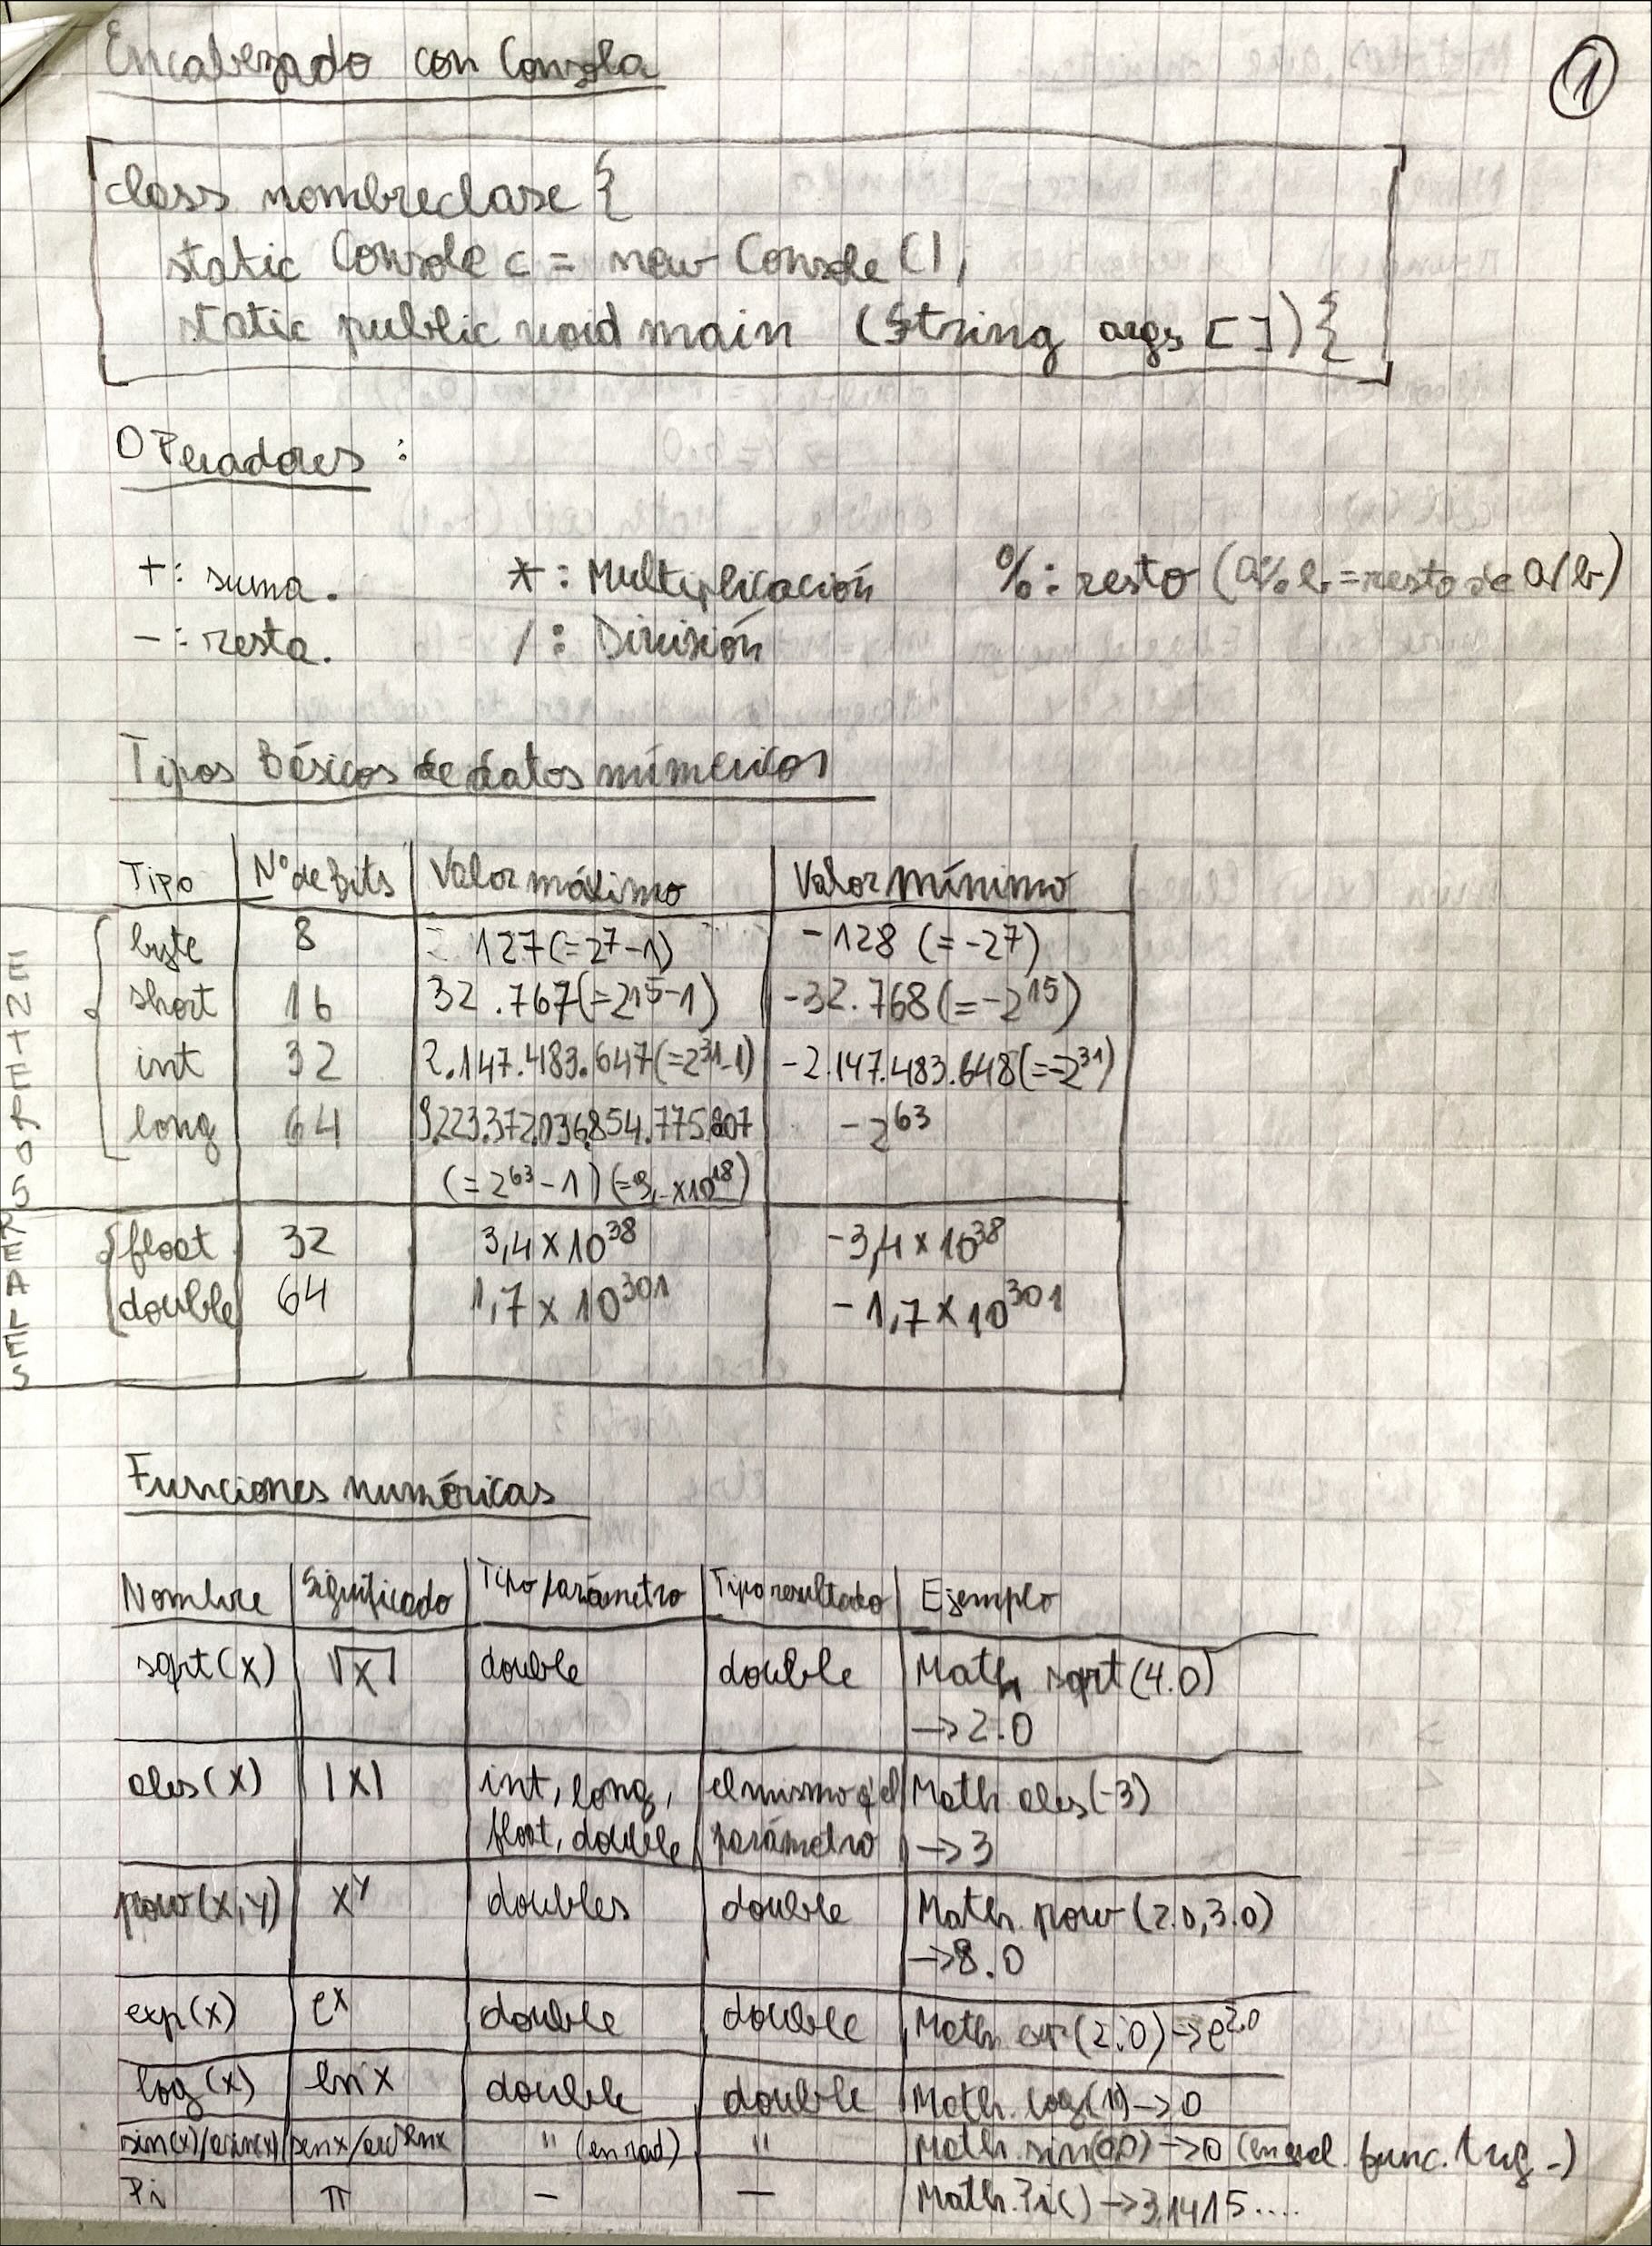 Encabezado con Consola
1
class nombreclase {
static Console c = new Console ();
static public void main (String args []) {
Operadores:
+: suma. *: Multiplicación %: resto (a%b=resto de a/b)
-: resta. /: División
Tipos Básicos de datos númericos
Tipo Nº de Bits Valor máximo Valor mínimo
byte 8 127 (=2⁷-1) -128 (=-2⁷)
short 16 32.767 (=2¹⁵-1) -32.768 (=-2¹⁵)
int 32 2.147.483.647 (=2³¹-1) -2.147.483.648 (=-2³¹)
long 64 9.223.372.036.854.775.807 -2⁶³
(=2⁶³-1) (=9,-x10¹⁸)
float 32 3,4 x 10³⁸ -3,4 x 10³⁸
double 64 1,7 x 10³⁰¹ -1,7 x 10³⁰¹
REALES
Funciones numéricas
Nombre Significado Tipo parámetro Tipo resultado Ejemplo
sqrt(x) √x double double Math sqrt(4.0)
→2.0
abs(x) |x| int, long, el mismo q'el Math abs(-3)
float, double parámetro →3
pow(x,y) xʸ doubles double Math.pow(2.0,3.0)
→8.0
exp(x) eˣ double double Math exp(2.0)→e²·⁰
log(x) ln x double double Math.log(1)→0
sin(x)/asin(x) senx/arcsenx " (en rad) " Math.sin(0.0)→0 func. trig.)
Pi π - - Math.Pi()→3,1415....